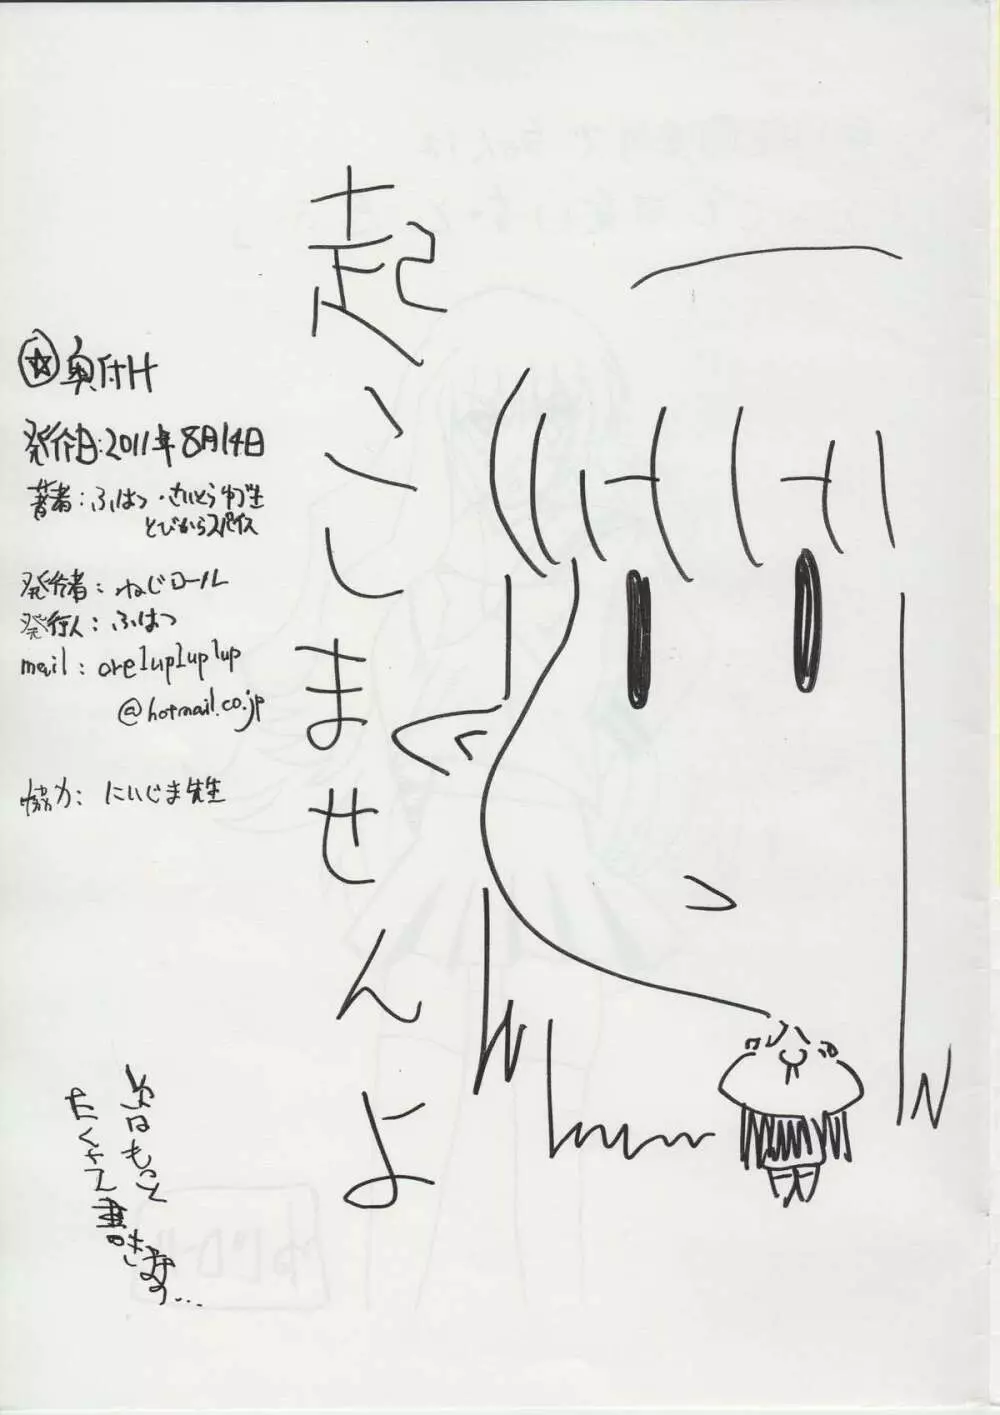 起こしませんよ
☆奥付け
発行日:2011年8月14日
著者:ふはつ・さいとう
とびからスパイス
発行者:ねじロール
発行人:ふはつ
mail:ore1up1up1up
@hotmail.co.jp
協力:にいじま先生
次はもっと
たくさん書きます…